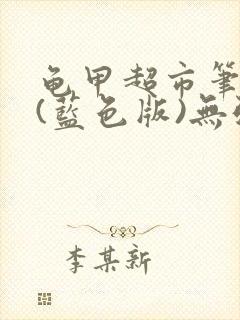 龟甲超市筆
(藍色版)無
李某新